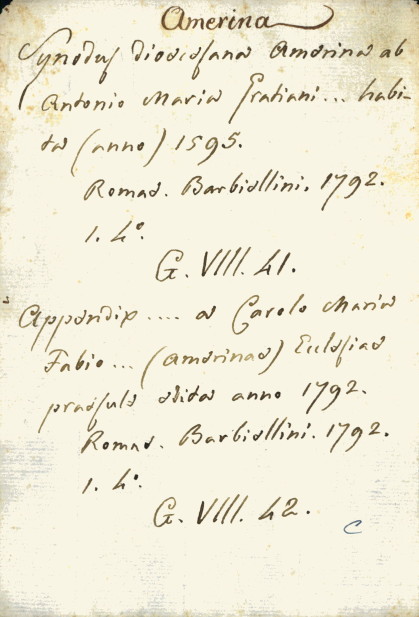 Amerina
Synodus dioecesana Amerina ab
Antonio Maria Gratiani... habi-
ta (anno) 1595.
Romae. Barbiellini. 1792.
1. 4°.
G. VIII. 41.
Appendix .... a Carolo Maria
Fabio... (Amerinae) Ecclesiae
praesule edita anno 1792.
Romae. Barbiellini. 1792.
1. 4°.
G. VIII. 42.
C